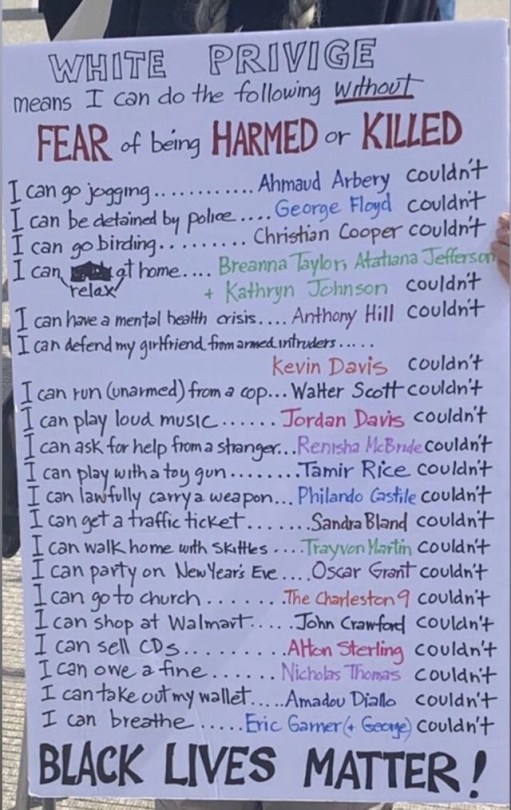 WHITE PRIVIGE
means I can do the following without
FEAR of being HARMED or KILLED
I can go jogging............ Ahmaud Arbery couldn't
I can be detained by police.... George Floyd couldn't
I can go birding......... Christian Cooper couldn't
I can relax at home.... Breanna Taylor, Atatiana Jefferson
+ Kathryn Johnson couldn't
I can have a mental health crisis.... Anthony Hill couldn't
I can defend my girlfriend from armed intruders.....
Kevin Davis couldn't
I can run (unarmed) from a cop... Walter Scott couldn't
I can play loud music...... Jordan Davis couldn't
I can ask for help from a stranger... Renisha McBride couldn't
I can play with a toy gun....... Tamir Rice couldn't
I can lawfully carry a weapon... Philando Castile couldn't
I can get a traffic ticket....... Sandra Bland couldn't
I can walk home with Skittles.... Trayvon Martin couldn't
I can party on New Year's Eve.... Oscar Grant couldn't
I can go to church....... The Charleston 9 couldn't
I can shop at Walmart..... John Crawford couldn't
I can sell CDs.......... Alton Sterling couldn't
I can owe a fine...... Nicholas Thomas couldn't
I can take out my wallet..... Amadou Diallo couldn't
I can breathe...... Eric Garner (+ George) couldn't
BLACK LIVES MATTER!